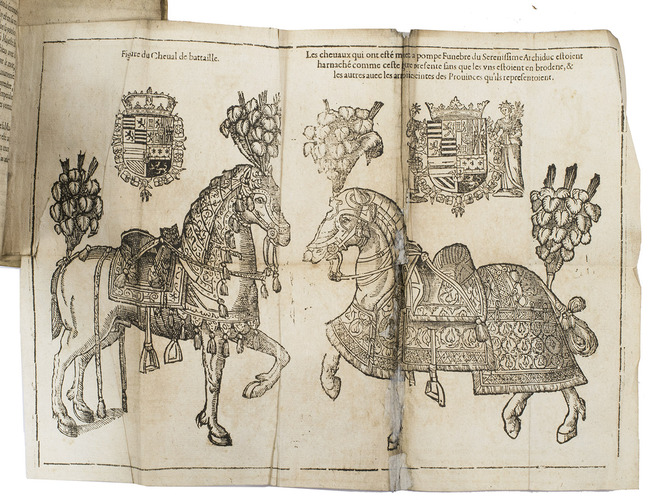 Figure du Cheval de battaille.
Les cheuaux qui ont esté mis a pompe Funebre du Serenissime Archiduc estoient
harnaché comme ceste presente sans que les vns estoient en broderie, &
les autres auec les des Prouinces qu'ils representoient.